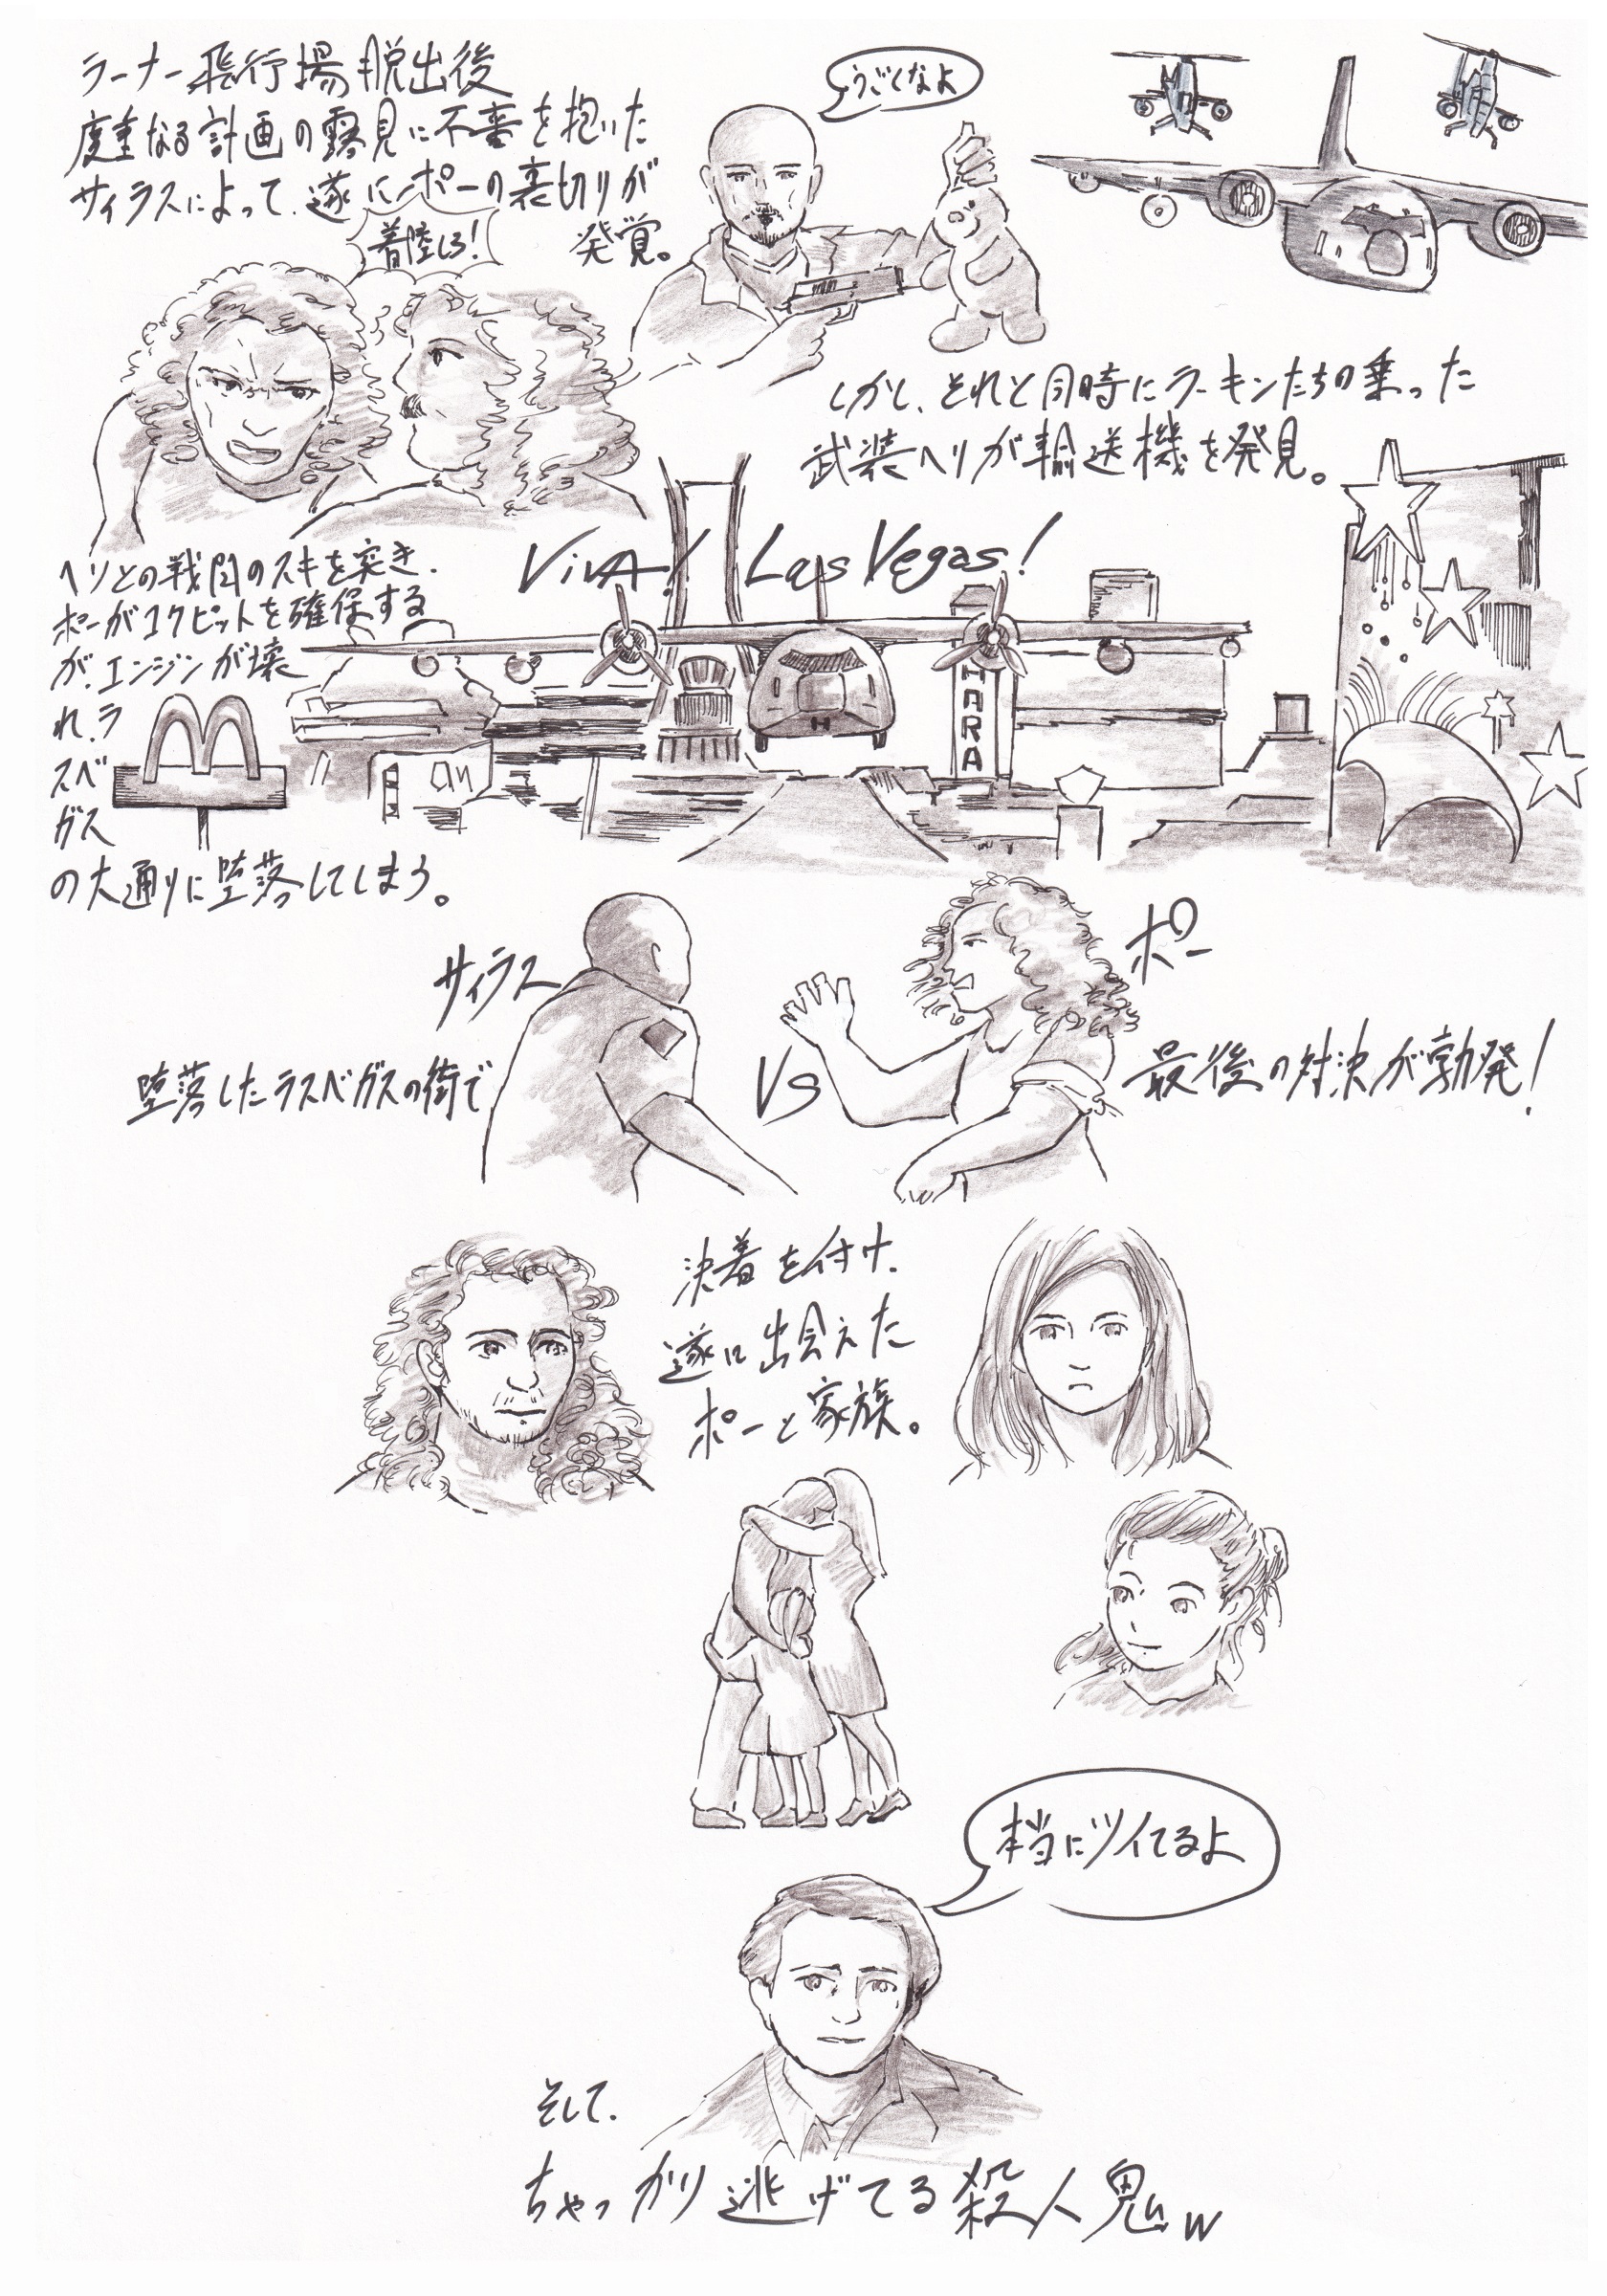 ラーナー飛行場脱出後
度重なる計画の露見に不審を抱いた
サイラスによって、遂にポーの裏切りが
発覚。
うごくなよ
着陸しろ!
しかし、それと同時にラーキンたちの乗った
武装ヘリが輸送機を発見。
ヘリとの戦闘のスキを突き、
ポーがコクピットを確保する
が、エンジンが壊
れ、ラ
スベ
ガス
の大通りに堕落してしまう。
VivA! Las Vegas!
HARA
H
サイラス
ポー
堕落したラスベガスの街で
VS
最後の対決が勃発!
決着を付け、
遂に出会えた
ポーと家族。
本当にツイてるよ
そして、
ちゃっかり逃げてる殺人鬼w